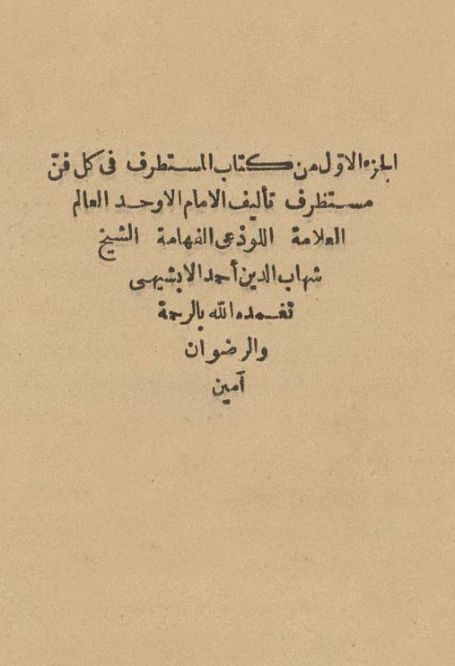 الجزء الاول من كتاب المستطرف فى كل فنّ
مستظرف تأليف الامام الاوحد العالم
العلامة اللوذعى الفهامة الشيخ
شهاب الدين أحمد الابشيهى
تغمده الله بالرحمة
والرضوان
آمين